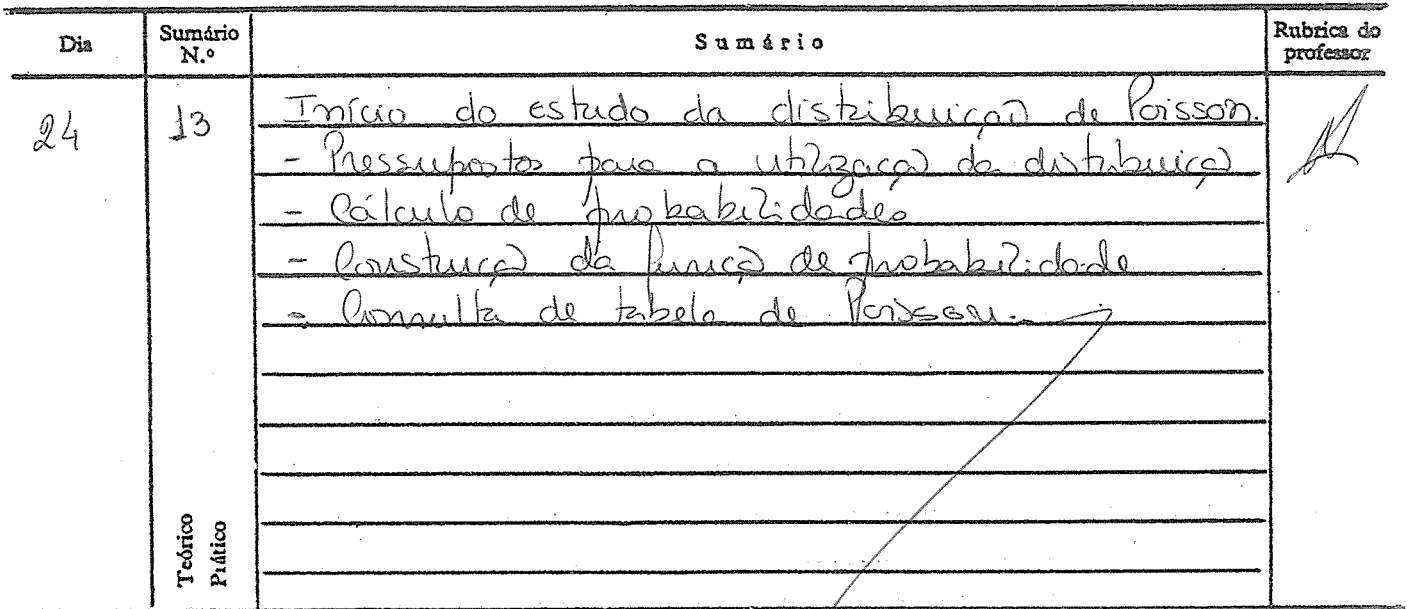 Dia Sumário N.º Sumário Rubrica do professor
24 13 Início do estudo da distribuição de Poisson.
- Pressupostos para a utilização da distribuição
- Cálculo de probabilidades
- Construção da função de probabilidade
- Consulta de tabela de Poisson.
Teórico
Prático